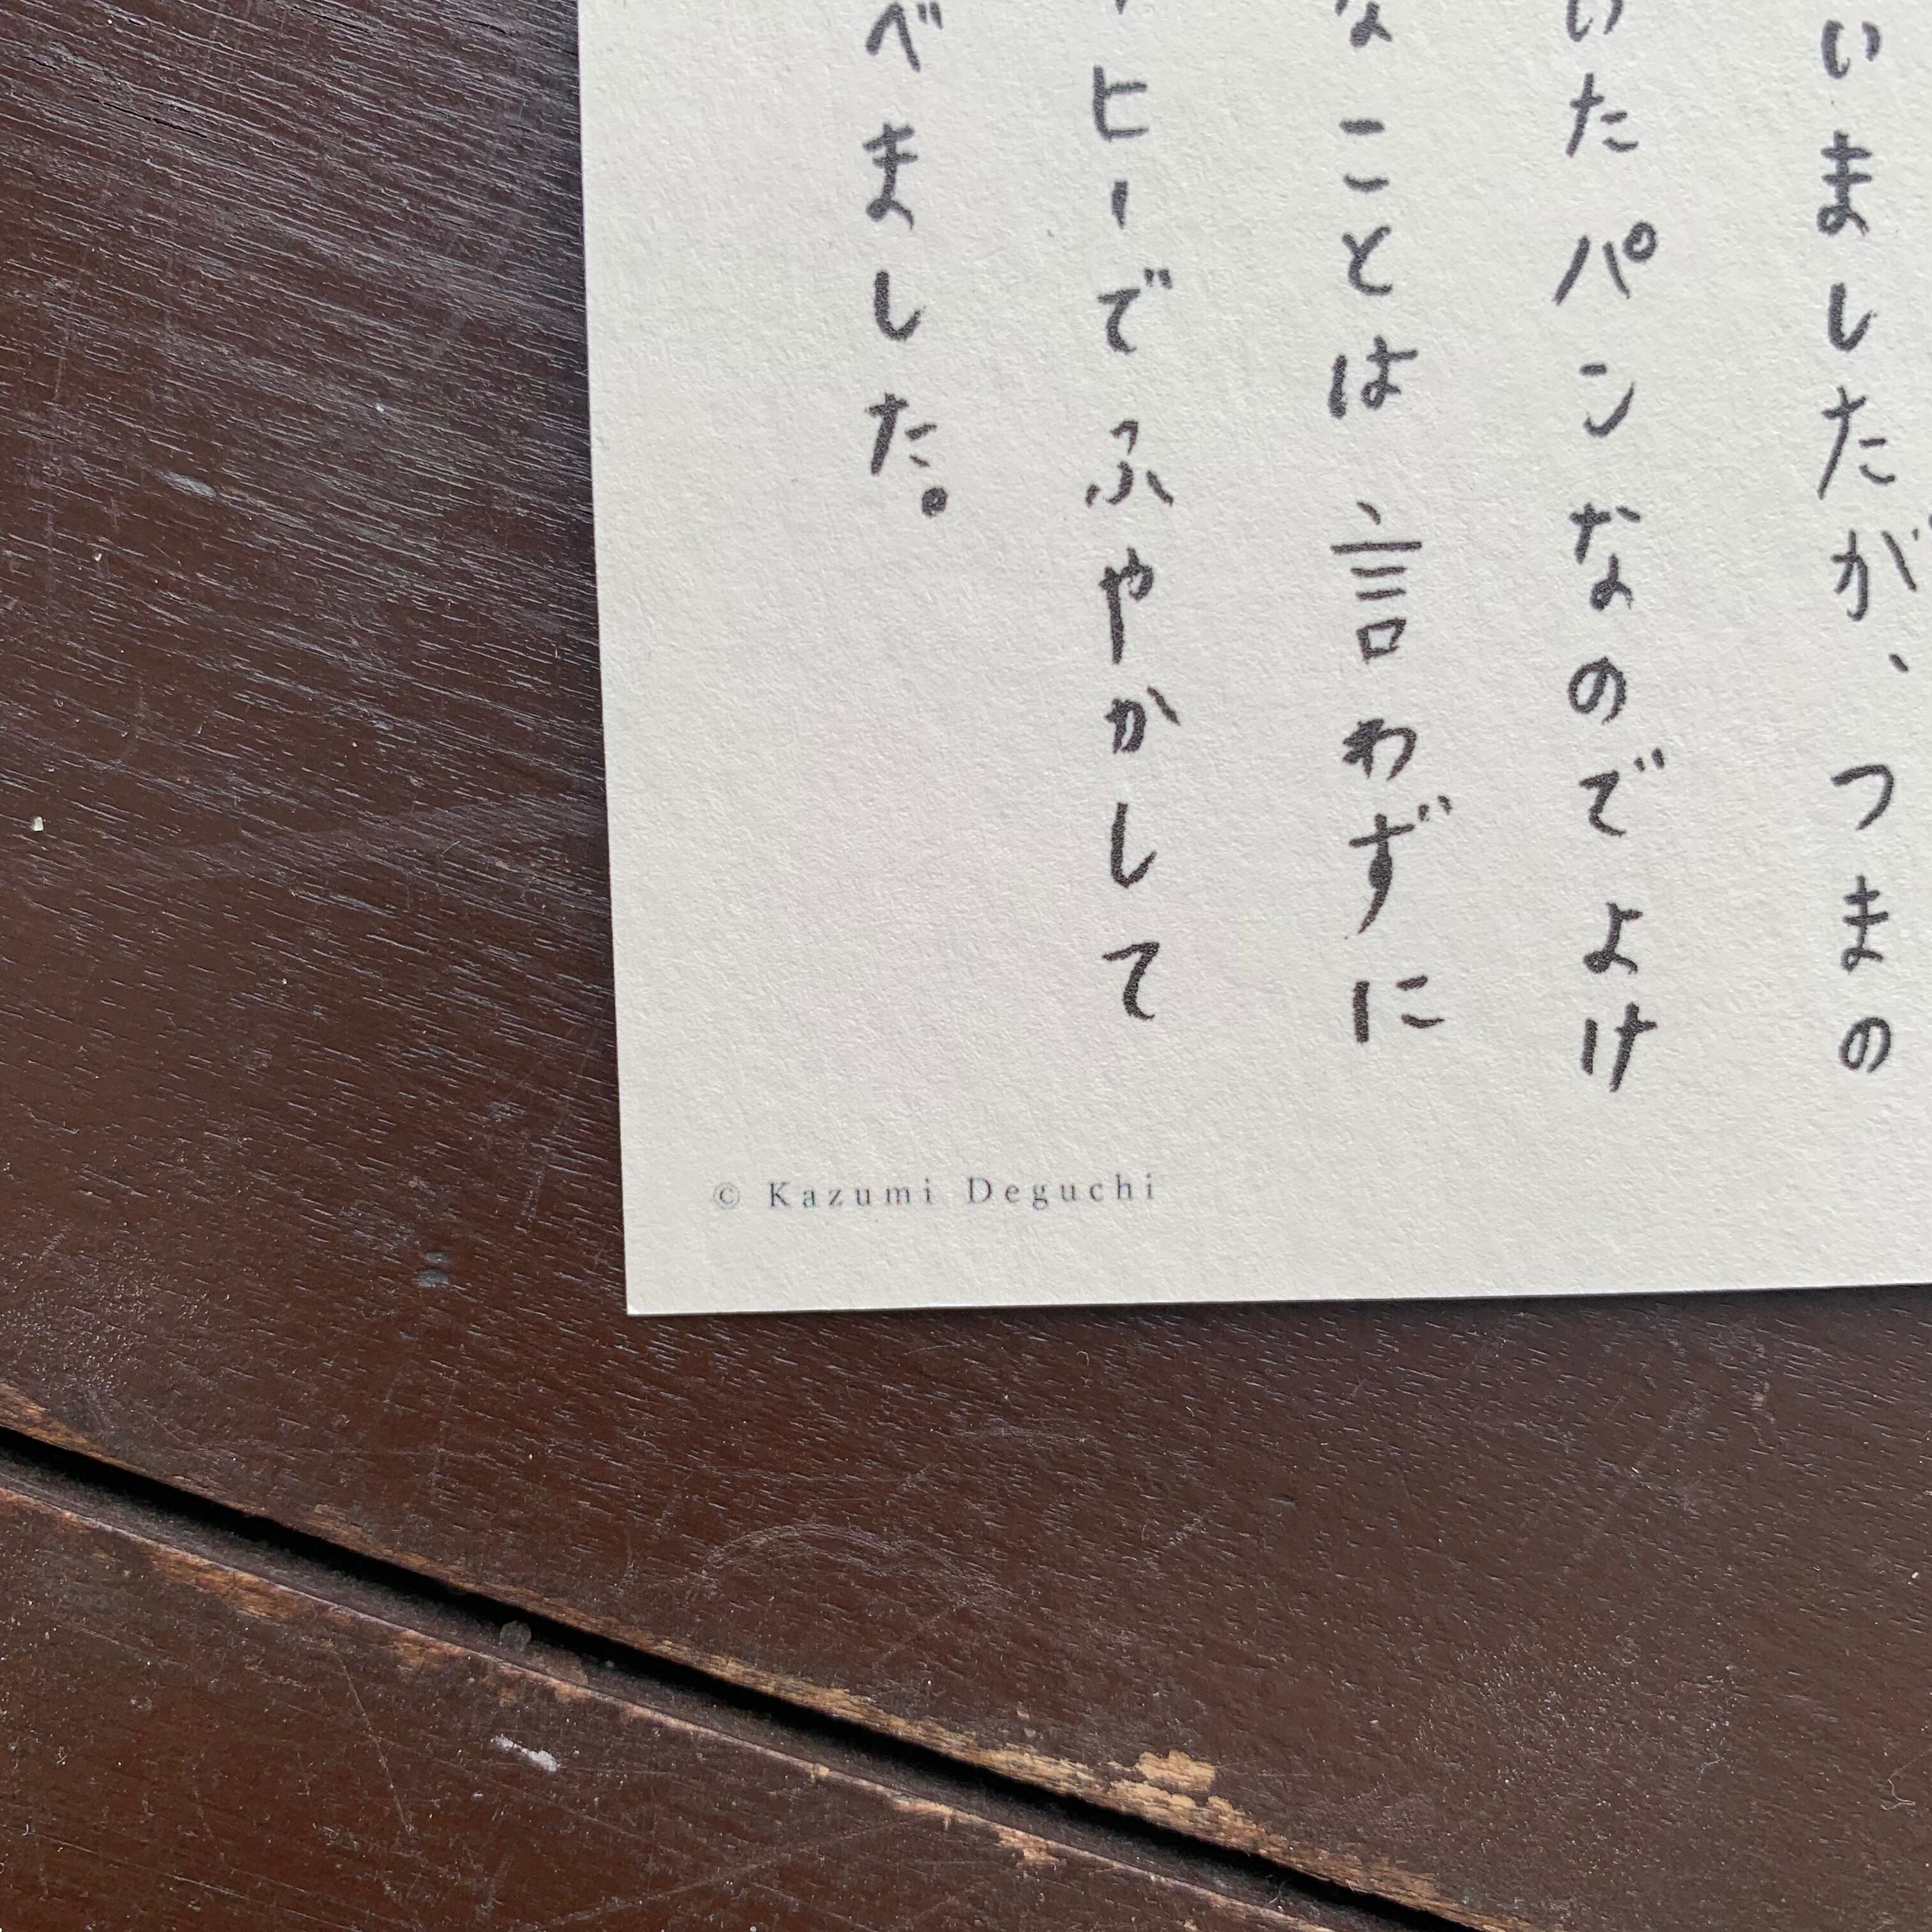 いましたが、つまの
いたパンなのでよけ
なことは言わずに
ヒーでふやかして
べました。
© Kazumi Deguchi